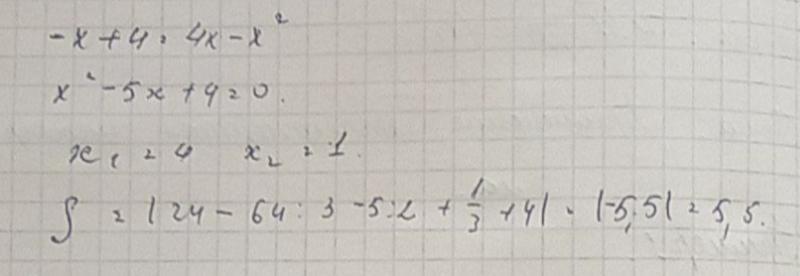 -x + 4 = 4x - x²
x² - 5x + 4 = 0.
x₁ = 4 x₂ = 1.
∫ = | 24 - 64 : 3 - 5 : 2 + 1/3 + 4 | = |-5,5| = 5,5.